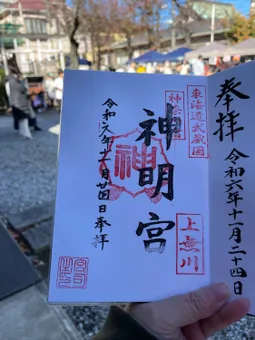 奉拝
令和六年十一月二十四日
東海道武蔵国
神奈川宿
神明宮
神
上無川
令和六年十一月廿四日奉拝